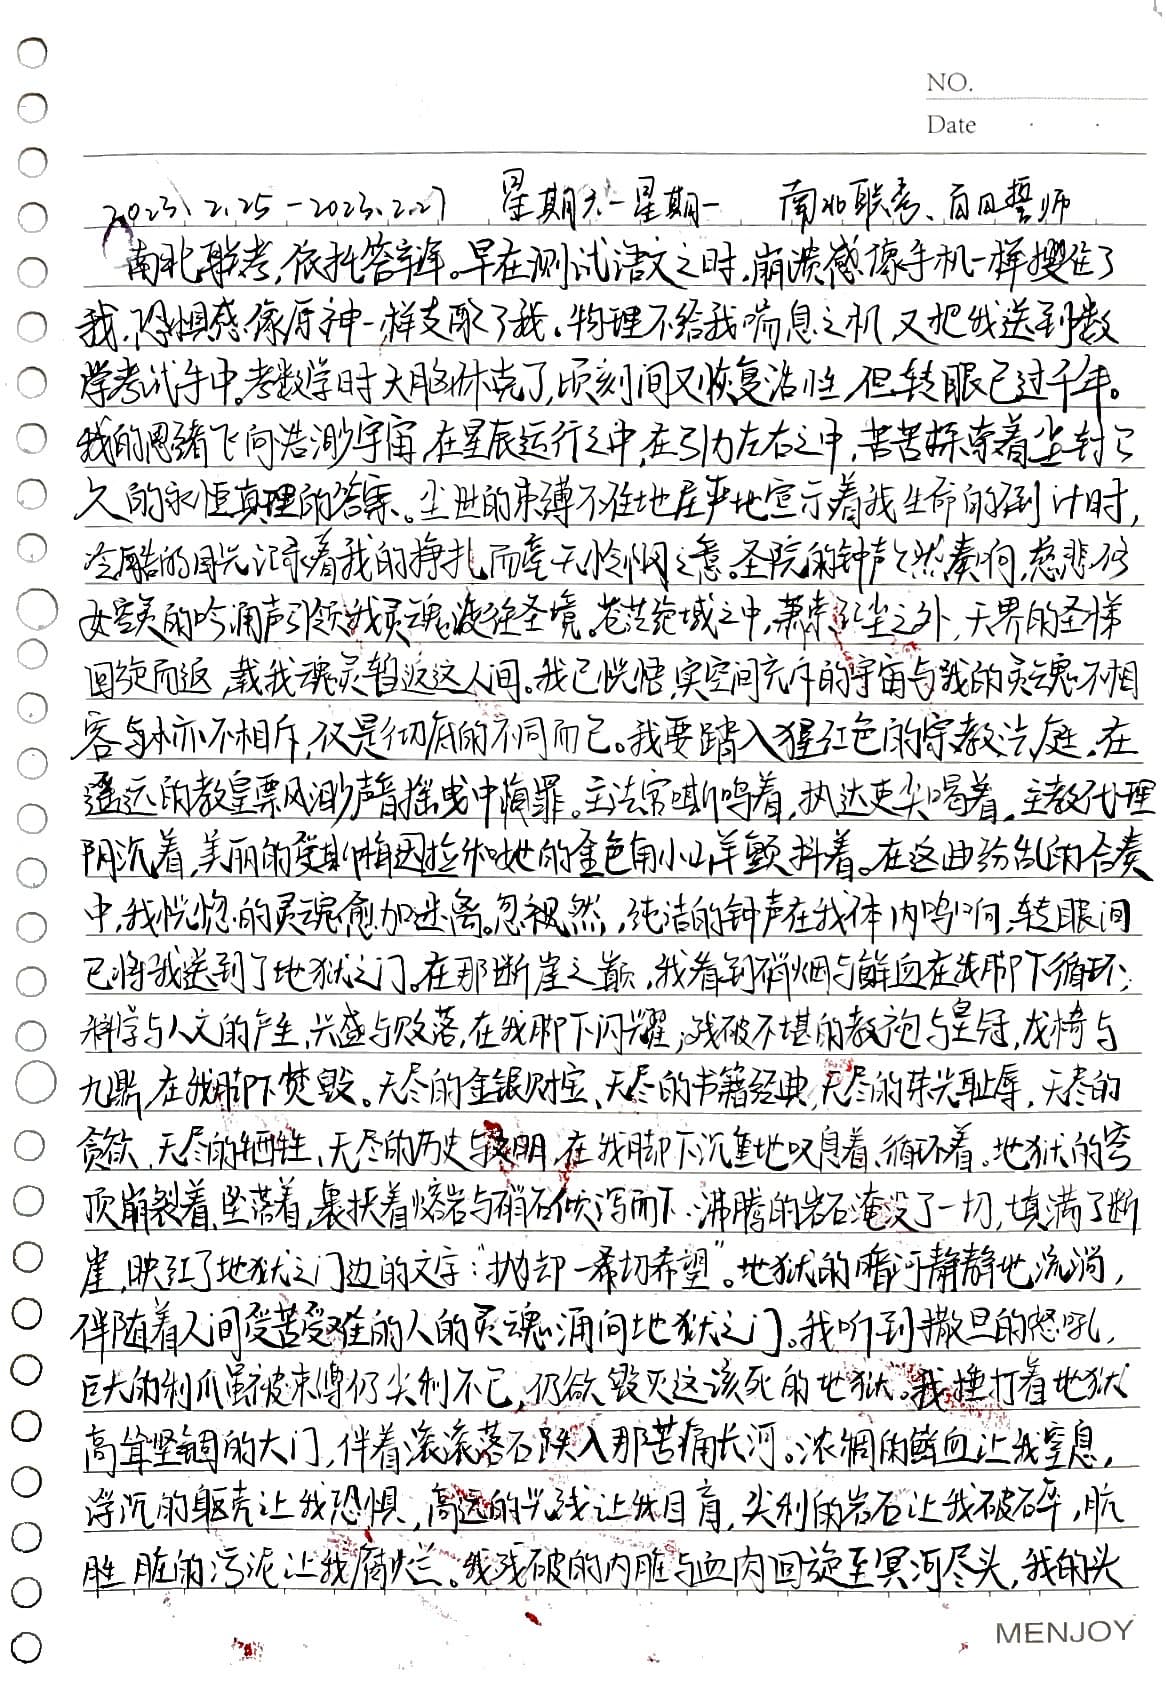 NO.
Date
2023.2.25-2023.2.27 星期六-星期一 南北联考、百日誓师
南北联考,依托答辩。早在测试语文之时,崩溃感像手机一样攫住了
我,恐惧感像原神一样支配了我。物理不给我喘息之机,又把我送到数
学考试手中。考数学时大脑休克了,顷刻间又恢复活性,但转眼已过千年。
我的思绪飞向浩渺宇宙,在星辰运行之中,在引力左右之中,苦苦探索着尘封已
久的永恒真理的答案。尘世的束缚不作地庄严地宣示着我生命的倒计时,
冷酷的目光记录着我的挣扎而毫无怜悯之意。圣院的钟声忽然奏响,慈悲修
女空灵的吟诵声引领我灵魂渡往圣境。苍茫苑域之中,萧索红尘之外,天界的圣梯
回旋而返,载我魂灵暂返这人间。我已恍悟,实空间充斥的宇宙与我的灵魂不相
容与亦不相斥,仅是彻底的不同而已。我要踏入猩红色的宗教法庭,在
遥远的教皇飘渺声音摇曳中赎罪。主法官嘶鸣着,执达吏尖喝着,主教代理
阴沉着,美丽的爱斯梅拉达和她的金色角小山羊颤抖着。在这曲纷乱的合奏
中,我恍惚的灵魂愈加迷离。忽然,纯洁的钟声在我体内鸣响,转眼间
已将我送到了地狱之门。在那断崖之巅,我看到硝烟与鲜血在我脚下循环;
科学与人文的产生,兴盛与败落,在我脚下闪耀;残破不堪的教袍与皇冠,龙椅与
九鼎,在我脚下焚毁。无尽的金银财宝、无尽的书籍经典,无尽的荣光耻辱,无尽的
贪欲、无尽的牺牲、无尽的历史与文明,在我脚下沉重地叹息着、循环着。地狱的穹
顶崩裂着,坠落着,裹挟着熔岩与硝石倾泻而下。沸腾的岩石淹没了一切,填满了断
崖,映红了地狱之门边的文字:“抛却一切希望”。地狱的暗河静静地流淌,
伴随着人间受苦受难的人的灵魂涌向地狱之门。我听到撒旦的怒吼,
巨大的利爪虽被束缚仍尖利不已,仍欲毁灭这该死的地狱。我捶打着地狱
高耸坚锢的大门,伴着滚滚落石跌入那苦痛长河。浓稠的鲜血让我窒息,
浮沉的躯壳让我恐惧,高远的光线让我目盲,尖利的岩石让我破碎,肮
脏的污泥让我腐烂。我残破的内脏与血肉回旋至冥河尽头,我的头
MENJOY